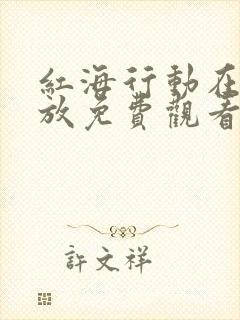 紅海行動在
放免費觀看
許文祥